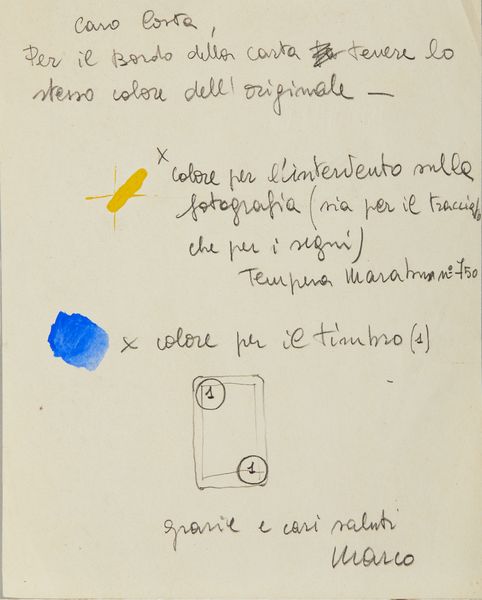 Caro Costa,
Per il Bordo della carta tenere lo
stesso colore dell'originale —
x
colore per l'intervento sulla
fotografia (sia per il tracciato
che per i segni)
Tempera Marabu n° 750
x colore per il timbro (1)
1
1
grazie e cari saluti
Marco